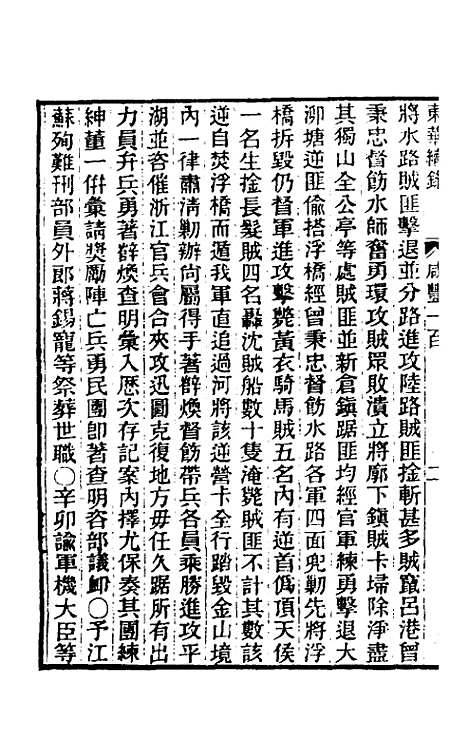 東華續錄 咸豐一百 二
將水路賊匪擊退並分路進攻陸路賊匪擒斬甚多賊竄呂港曾
秉忠督飭水師奮勇環攻賊眾敗潰立將廓下鎮賊卡埽除淨盡
其獨山全公亭等處賊匪並新倉鎮踞匪均經官軍練勇擊退大
泖塘逆匪偷搭浮橋經曾秉忠督飭水路各軍四面兜勦先將浮
橋拆毀仍督軍進攻擊斃黃衣騎馬賊五名內有逆首僞頂天侯
一名生擒長髮賊四名轟沈賊船數十隻淹斃賊匪不計其數該
逆自焚浮橋而遁我軍直追過河將該逆營卡全行踏毀金山境
內一律肅清勦辦尚屬得手著薛煥督飭帶兵各員乘勝進攻平
湖並咨催浙江官兵會合夾攻迅圖克復地方毋任久踞所有出
力員弁兵勇著薛煥查明彙入歷次存記案內擇尤保奏其團練
紳董一併彙請獎勵陣亡兵勇民團卽著查明咨部議卹〇予江
蘇殉難刑部員外郎蔣錫寵等祭葬世職〇辛卯諭軍機大臣等